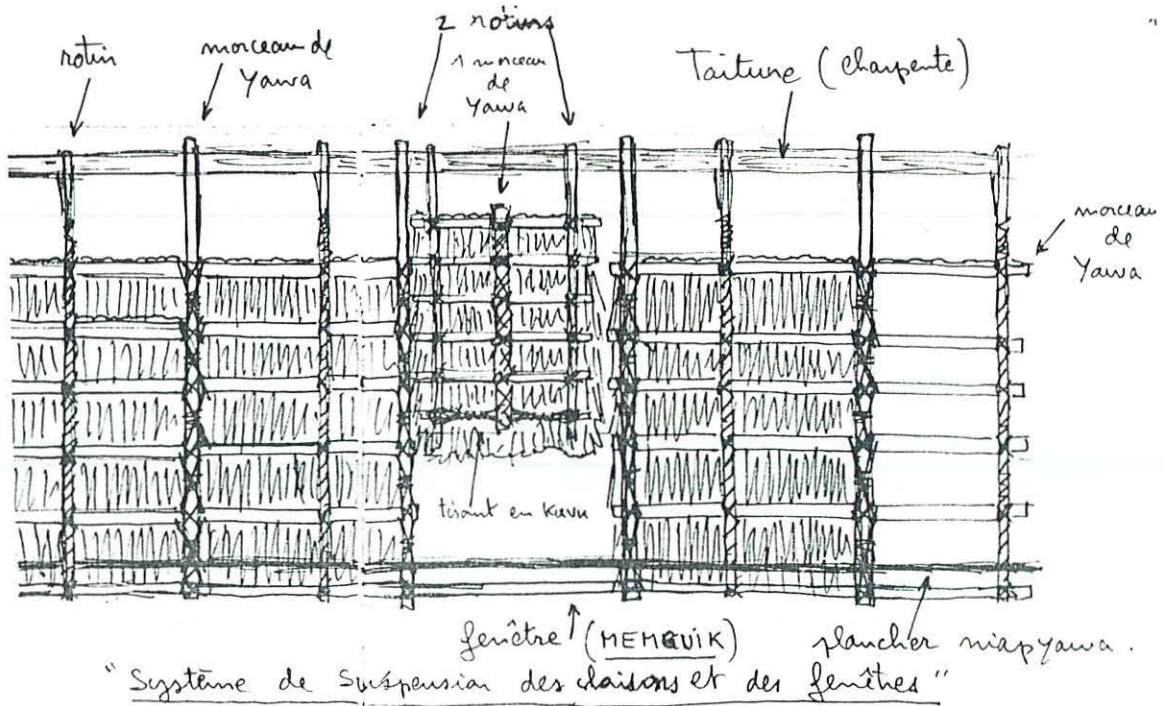 rotin
morceau de
Yawa
2 rotins
1 morceau
de
Yawa
Toiture (charpente)
morceau
de
Yawa
tirant en kuvu
fenêtre (MEMGUIK)
plancher niapyawa.
"Système de Suspension des cloisons et des fenêtres"